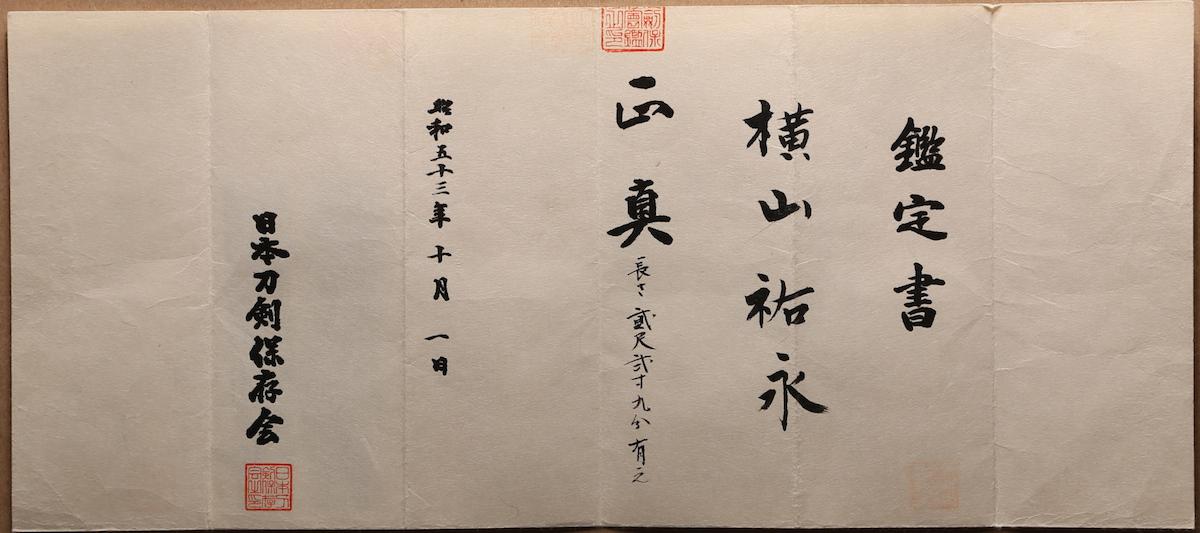 鑑定書
横山祐永
正真
長さ貳尺弐寸九分有之
昭和五十三年十月一日
日本刀剣保存会